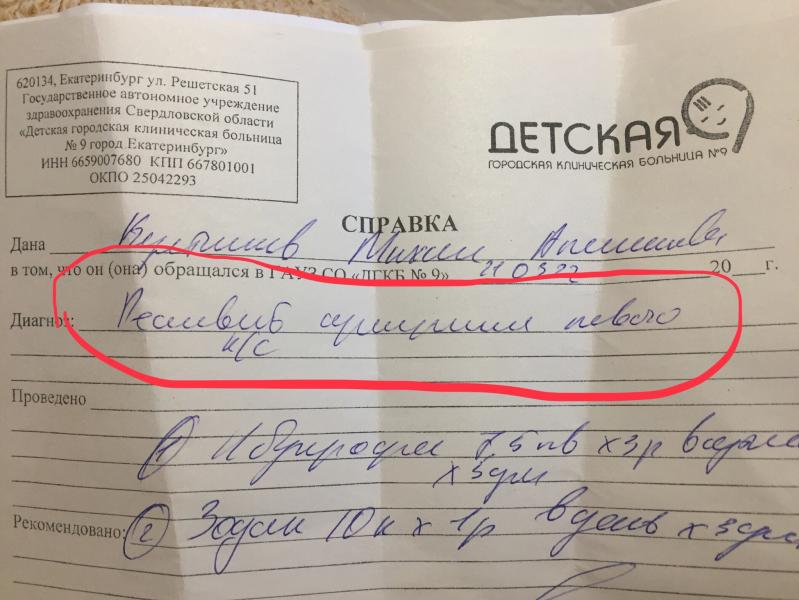 620134, Екатеринбург ул. Решетская 51
Государственное автономное учреждение
здравоохранения Свердловской области
«Детская городская клиническая больница
№ 9 город Екатеринбург»
ИНН 6659007680 КПП 667801001
ОКПО 25042293
ДЕТСКАЯ
ГОРОДСКАЯ КЛИНИЧЕСКАЯ БОЛЬНИЦА №9
СПРАВКА
Дана
в том, что он (она) обращался в ГАУЗ СО «ДГКБ № 9» 210322 20 г.
Диагноз: артрит левого
к/с
Проведено
① 7,5 х 3р
х 5дн
Рекомендовано: ② Зодак 10к х 1р в день х